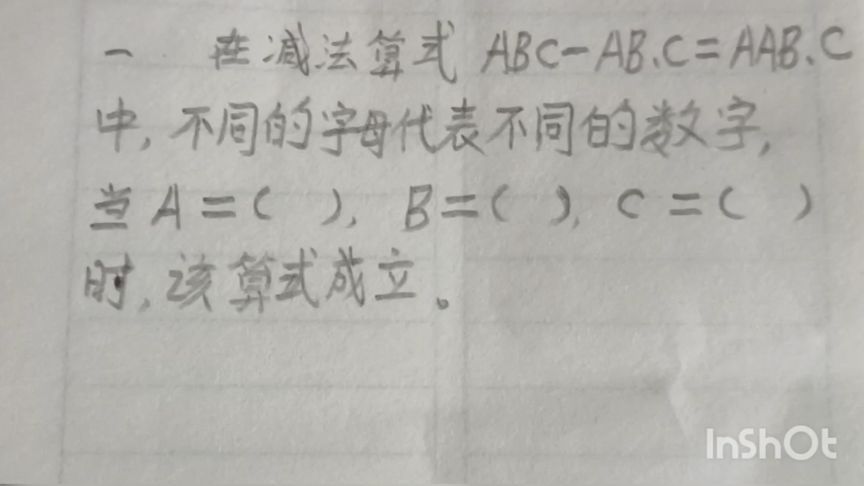 一 在减法算式 ABC-AB.C=AAB.C
中,不同的字母代表不同的数字,
当 A=( ), B=( ), C=( )
时,该算式成立。
InShOt